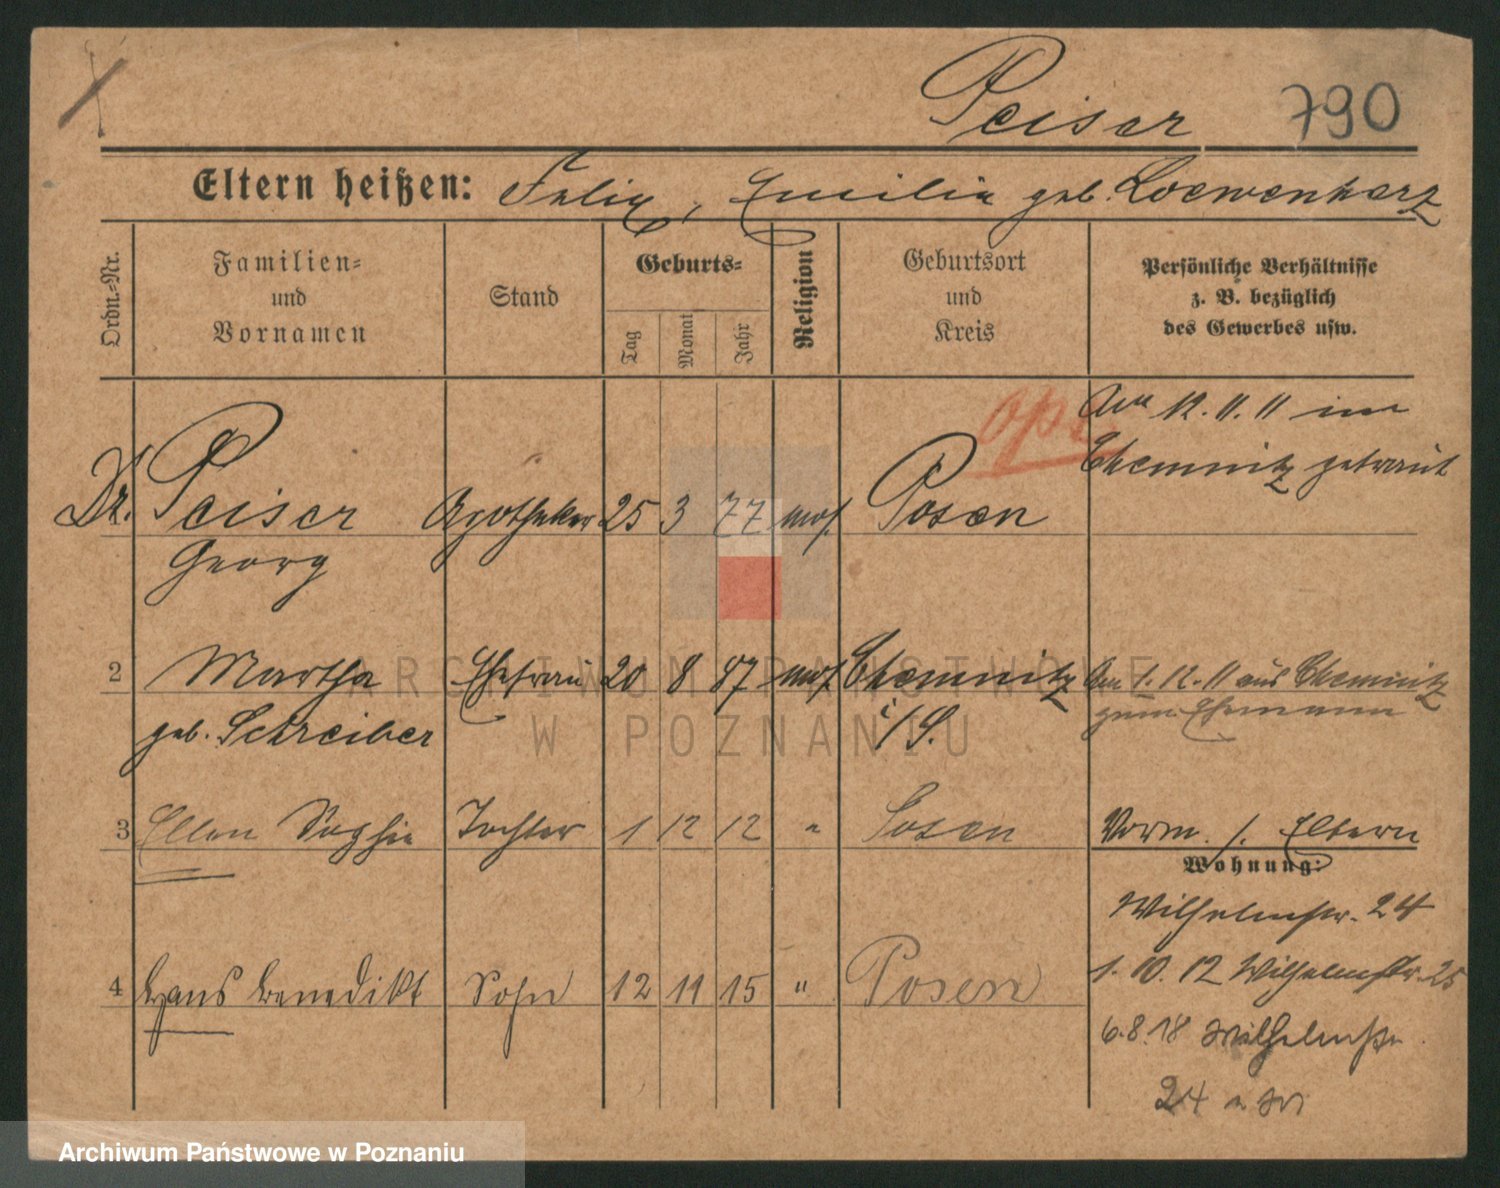 Peiser 790
Eltern heißen: Felix, Emilie geb. Loewenherz
Ordn.-Nr.
Familien-
und
Vornamen
Stand
Geburts-
Tag
Monat
Jahr
Religion
Geburtsort
und
Kreis
Persönliche Verhältnisse
z. B. bezüglich
des Gewerbes usw.
Dr. Peiser Apotheker 25 3 77 mos. Posen
Georg
Am 12. 11. 11 in
Chemnitz getraut
2 Martha Ehefrau 20 8 87 mos. Chemnitz
geb. Schreiber i/S.
Am 1. 12. 11 aus Chemnitz
zum Ehemann
3 Ellen Sophie Tochter 1 12 12 " Posen
Vorm. s. Eltern
Wohnung:
Wilhelmstr. 24
4 Hans Benedikt Sohn 12 11 15 " Posen
1. 10. 12 Wilhelmstr. 25
6. 8. 18 Wilhelmstr.
24
ARCHIWUM PAŃSTWOWE
W POZNANIU
Archiwum Państwowe w Poznaniu